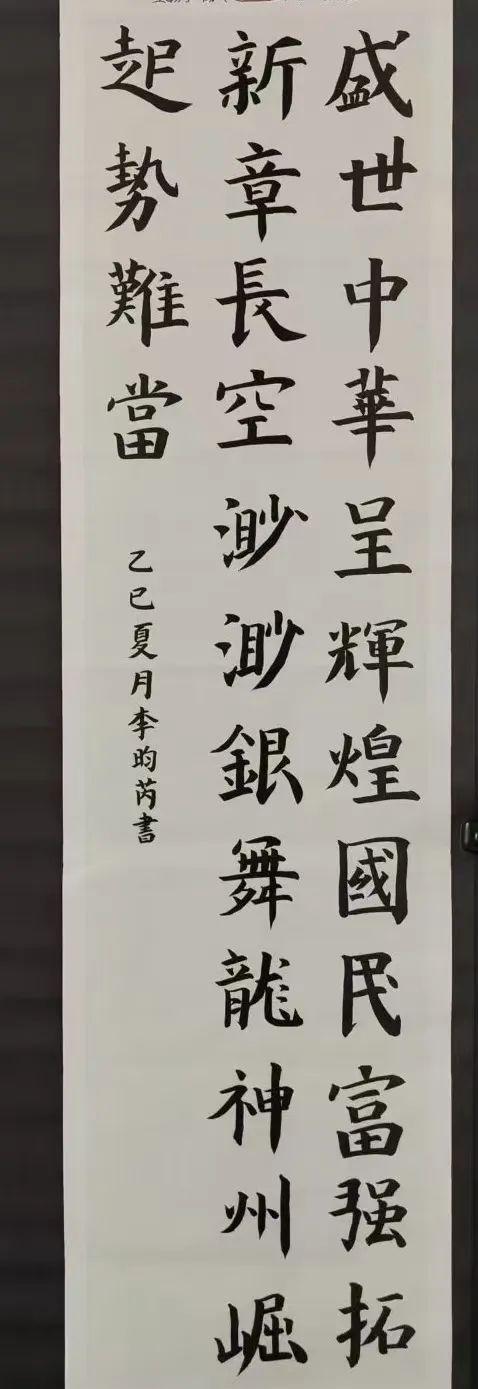 盛世中華呈輝煌國民富强拓
新章長空渺渺銀舞龍神州崛
起勢難當
乙巳夏月李昀芮書